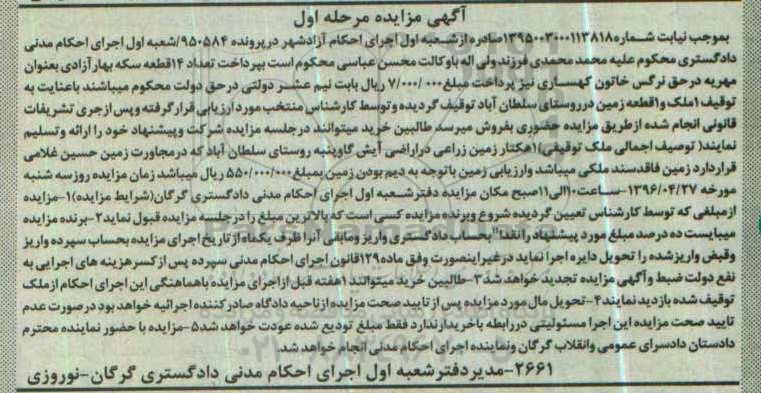 آگهی مزایده مرحله اول
بموجب نیابت شماره۱۳۹۵۰۰۳۰۰۰۱۱۳۸۱۸صادره ازشعبه اول اجرای احکام آزادشهر درپرونده ۹۵۰۵۸۴/شعبه اول اجرای احکام مدنی
دادگستری محکوم علیه محمد محمدی فرزند ولی اله باوکالت محسن عباسی محکوم است بپرداخت تعداد ۱۴قطعه سکه بهارآزادی بعنوان
مهریه درحق نرگس خاتون کهساری نیز پرداخت مبلغ۷/۰۰۰/۰۰۰ ریال بابت نیم عشر دولتی درحق دولت محکوم میباشند باعنایت به
توقیف ۱ملک و۱قطعه زمین درروستای سلطان آباد توقیف گردیده وتوسط کارشناس منتخب مورد ارزیابی قرارگرفته وپس ازجری تشریفات
قانونی انجام شده ازطریق مزایده حضوری بفروش میرسد طالبین خرید میتوانند درجلسه مزایده شرکت وپیشنهاد خود را ارائه وتسلیم
نمایند( توصیف اجمالی ملک توقیفی)۱هکتار زمین زراعی دراراضی آیش گاوپنبه روستای سلطان آباد که درمجاورت زمین حسین غلامی
قراردارد زمین فاقدسند ملکی میباشد وارزیابی زمین باتوجه به دیم بودن زمین بمبلغ۵۵۰/۰۰۰/۰۰۰ ریال میباشد زمان مزایده روزسه شنبه
مورخه ۱۳۹۶/۰۴/۲۷-ساعت۱۰الی۱۱صبح مکان مزایده دفترشعبه اول اجرای احکام مدنی دادگستری گرگان(شرایط مزایده)۱-مزایده
ازمبلغی که توسط کارشناس تعیین گردیده شروع وبرنده مزایده کسی است که بالاترین مبلغ را درجلسه مزایده قبول نماید۲-برنده مزایده
میبایست ده درصد مبلغ مورد پیشنهاد را نقدا" بحساب دادگستری واریز ومابقی آنرا ظرف یکماه ازتاریخ اجرای مزایده بحساب سپرده واریز
وقبض واریزشده را تحویل دایره اجرا نماید درغیراینصورت وفق ماده۱۲۹قانون اجرای احکام مدنی سپرده پس ازکسرهزینه های اجرایی به
نفع دولت ضبط وآگهی مزایده تجدید خواهد شد۳-طالبین خرید میتوانند ۱هفته قبل ازاجرای مزایده باهماهنگی این اجرای احکام ازملک
توقیف شده بازدید نمایند۴-تحویل مال مورد مزایده پس از تایید صحت مزایده ازناحیه دادگاه صادرکننده اجرائیه خواهد بود درصورت عدم
تایید صحت مزایده این اجرا مسئولیتی دررابطه باخریدارندارد فقط مبلغ تودیع شده عودت خواهد شد۵-مزایده با حضور نماینده محترم
دادستان دادسرای عمومی وانقلاب گرگان ونماینده اجرای احکام مدنی انجام خواهد شد.
۲۶۶۱-مدیردفترشعبه اول اجرای احکام مدنی دادگستری گرگان-نوروزی